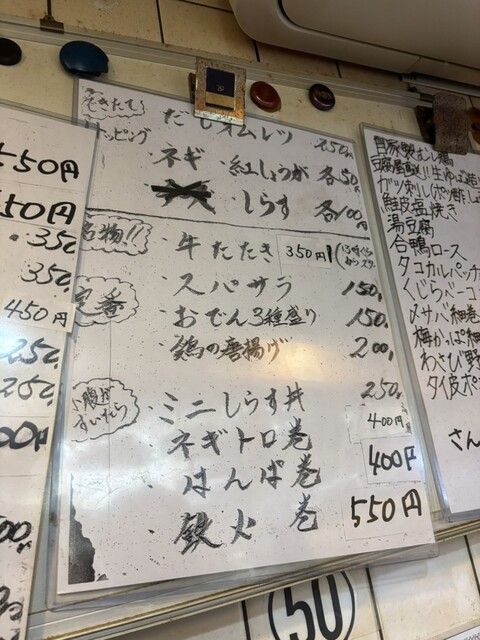 550円
350
350
450円
250
250
できたて
だしオムレツ 250
トッピング
・ネギ ・紅しょうが 各50
・しらす 各100円
名物!!
・牛たたき 350円
定番
・スパサラ 150
・おでん3種盛り 150
・鶏の唐揚げ 200
小腹が
すいたら
・ミニしらす丼 250
・ネギトロ巻 400円
・はんぱ巻 400円
・鉄火巻 550円
自家製むし鶏
鮭皮塩焼き
湯豆腐
合鴨ロース
タコカルパッチ
くじらベーコ
〆サバ細巻
梅かっぱ細
わさび野
タイ皮ポ
さん
50